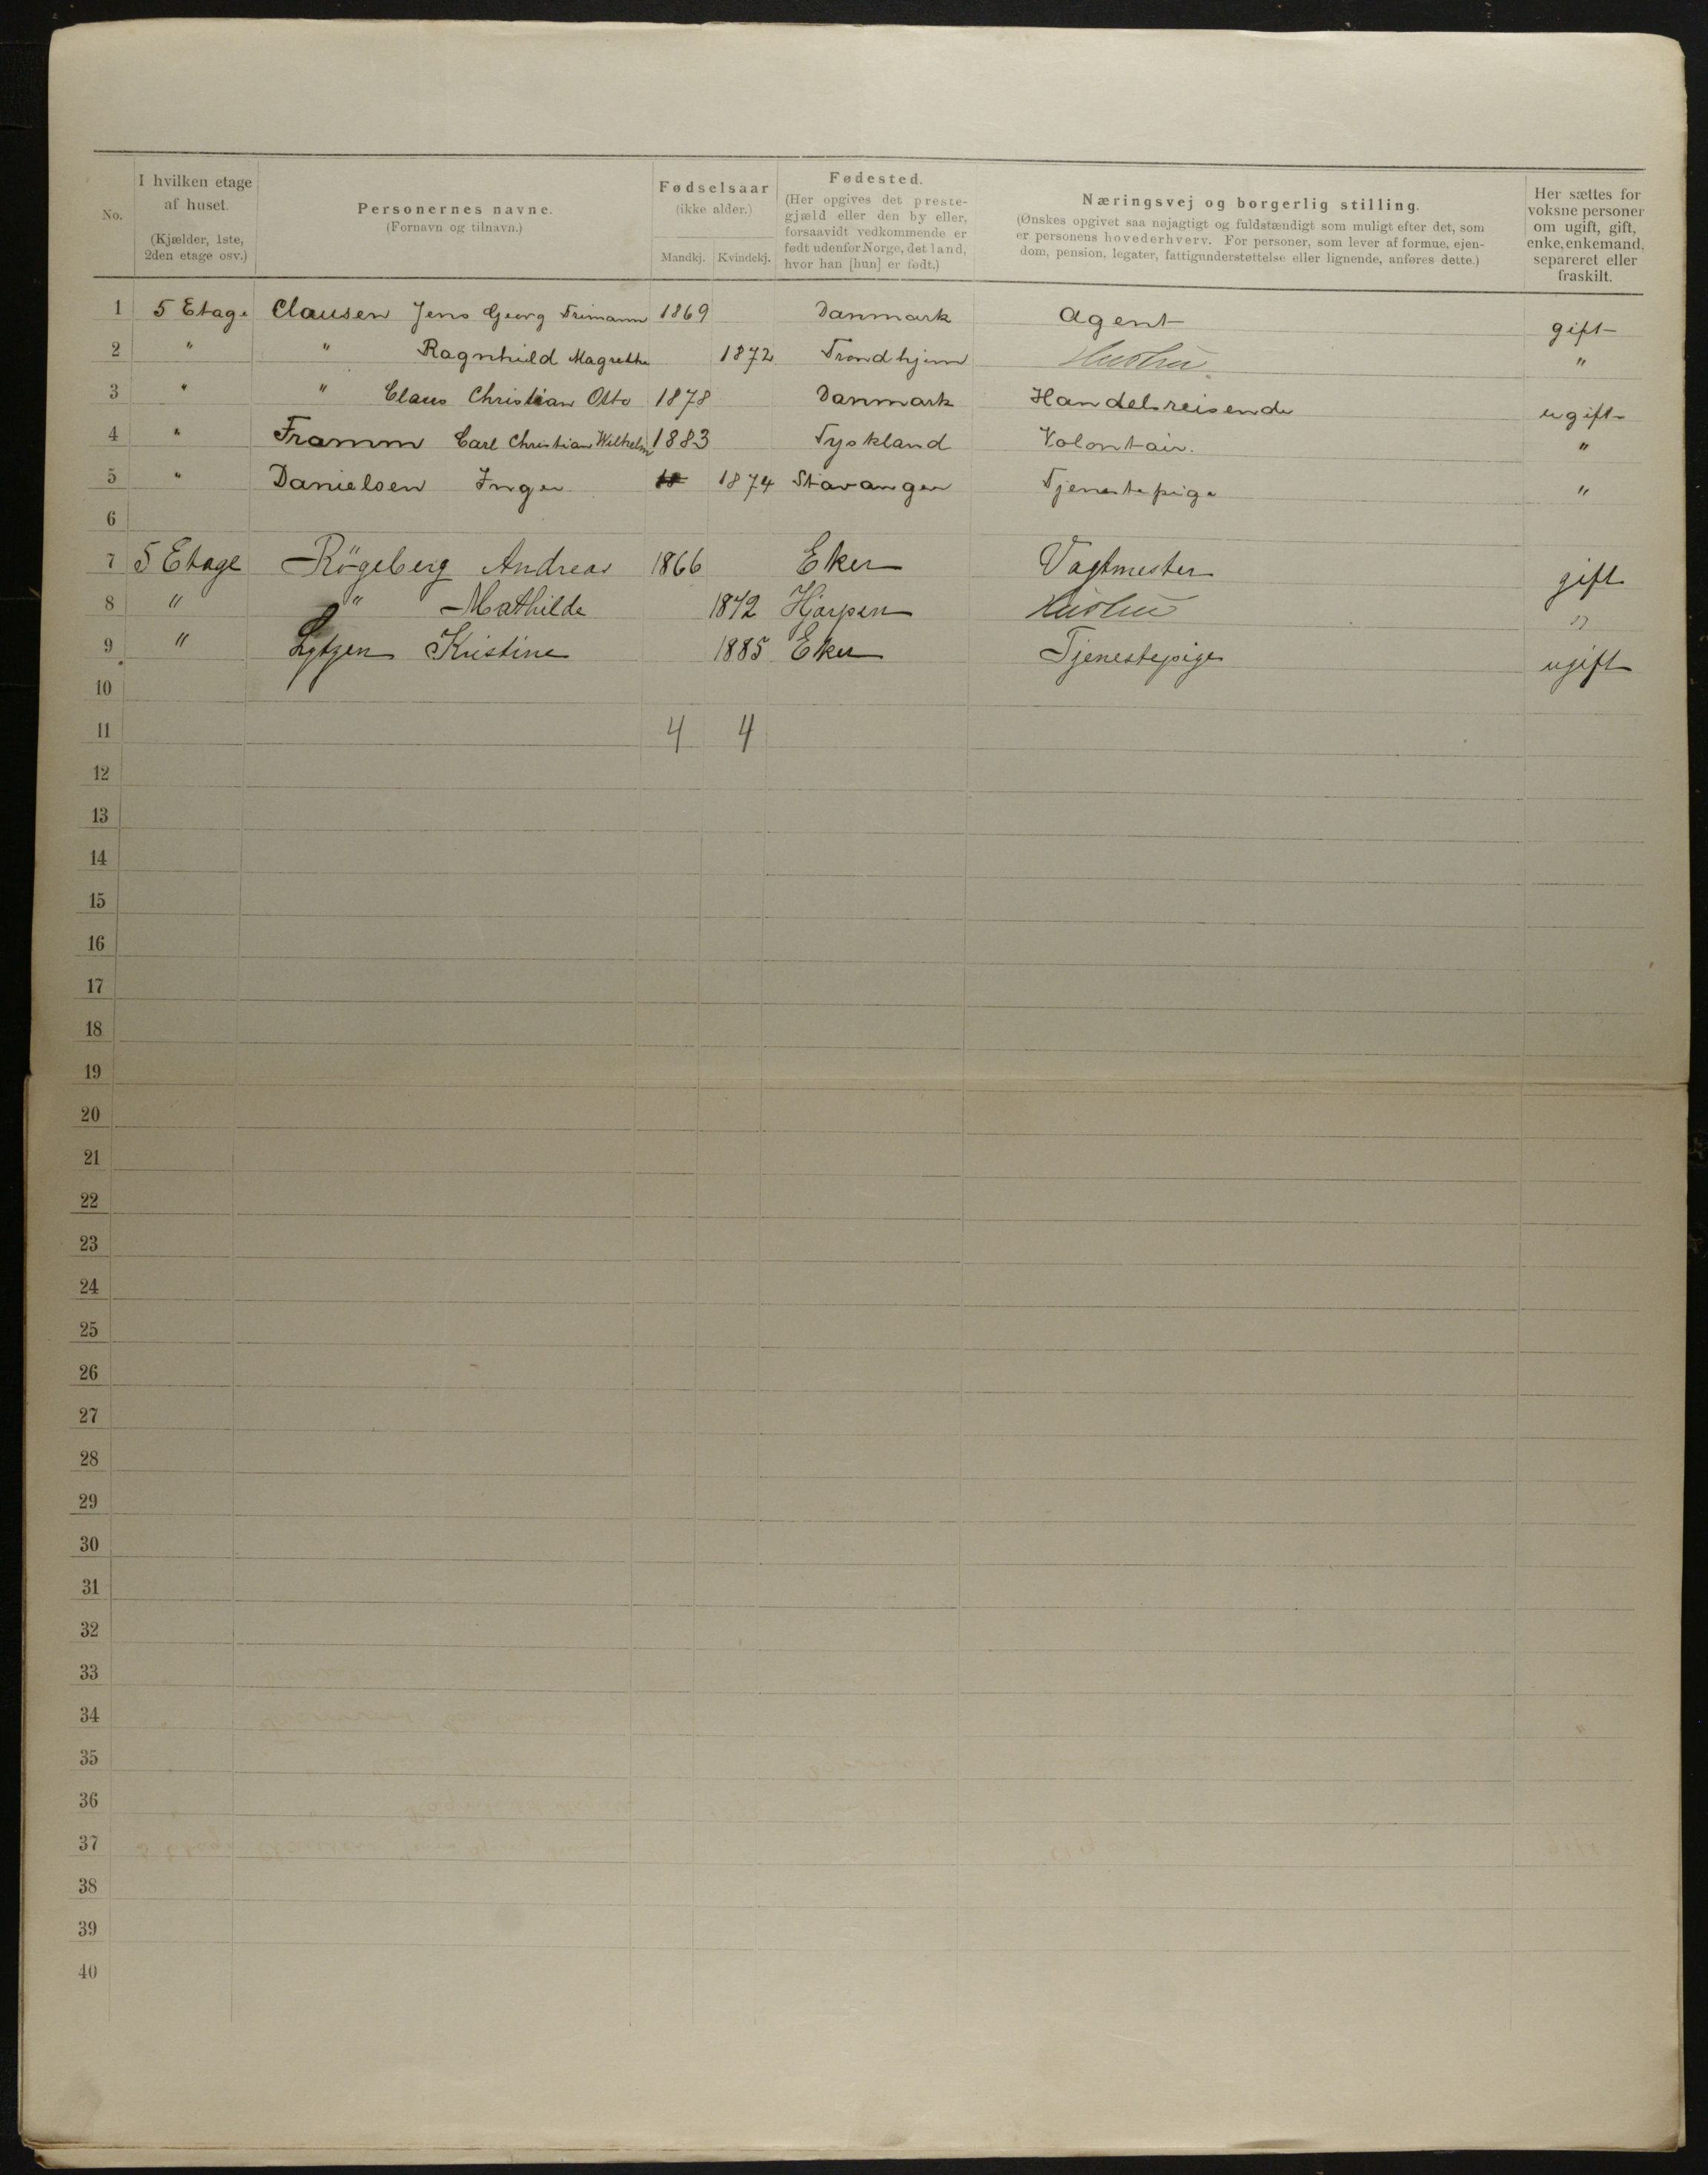 No.
I hvilken etage af huset. (Kjælder, 1ste, 2den etage osv.)
Personernes navne. (Fornavn og tilnavn.)
Fødselsaar (ikke alder.)
Mandkj. Kvindekj.
Fødested. (Her opgives det prestegjæld eller den by eller, forsaavidt vedkommende er født udenfor Norge, det land, hvor han [hun] er født.)
Næringsvej og borgerlig stilling. (Ønskes opgivet saa nøjagtigt og fuldstændigt som muligt efter det, som er personens hovederhverv. For personer, som lever af formue, ejendom, pension, legater, fattigunderstøttelse eller lignende, anføres dette.)
Her sættes for voksne personer om ugift, gift, enke, enkemand, separeret eller fraskilt.
1 5 Etage Clausen Jens Georg Trimann 1869 Danmark Agent gift
2 " " Ragnhild Magrethe 1872 Trondhjem Hustru "
3 " " Claus Christian Otto 1878 Danmark Handelsreisende ugift
4 " Framm Carl Christian Wilhelm 1883 Tyskland Volontair. "
5 " Danielsen Inger 18 1874 Stavanger Tjenestepige "
6
7 5 Etage Rögeberg Andreas 1866 Eker Vagtmester gift
8 " " Mathilde 1872 Hjerpen Hustru "
9 " Lytgen Kristine 1885 Eker Tjenestepige ugift
10
11 4 4
12
13
14
15
16
17
18
19
20
21
22
23
24
25
26
27
28
29
30
31
32
33
34
35
36
37
38
39
40